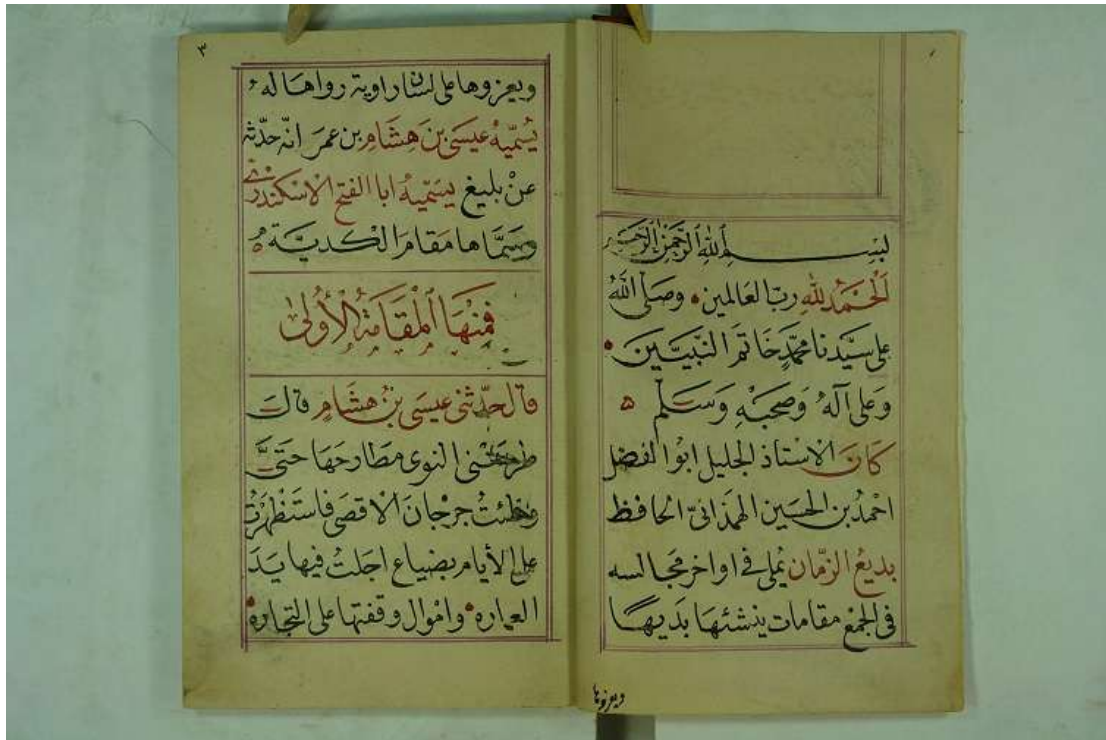 بِسْمِ اللهِ الرَّحْمٰنِ الرَّحِيمِ
اَلْحَمْدُ لِلّٰهِ رَبِّ العَالمين وصَلَّى اللهُ
على سَيِّدنا محمَّدٍ خَاتَم النَّبِيّين
وَعَلى آلهُ وَصَحبَهِ وَسَلَّم
كَانَ الاسْتاذ الجليل ابوالفضل
احمدُ بن الحسَين الهمذانىّ الحافظ
بديعُ الزّمان يُملى فى اواخر مَجالسه
فى الجمْع مقامات ينشئهَا بدَيهًا
ويعزوها
٣
ويعزوها على لسَان راوية رواها له
يُسَمِّيهُ عيسَى بنَ هِشَامِ بن عمرَ انّه حدّثه
عنْ بليغ يسَمّيهُ ابا الفتح الاسْكندرىّ
وسَمّاها مَقامَ الكديَّة
فَمِنْهَا المَقَامَةُ الأُولىٰ
قال حدّثنى عيسَى بن هشام قالَ
طرحَتْنى النوى مَطارحَهَا حتىَّ
وطئتُ جرجان الاقصَى فاستَظهَرْتُ
على الأيام بضياع اجلتُ فيها يَدَ
العماره وامْوال وقفتها على التجاره